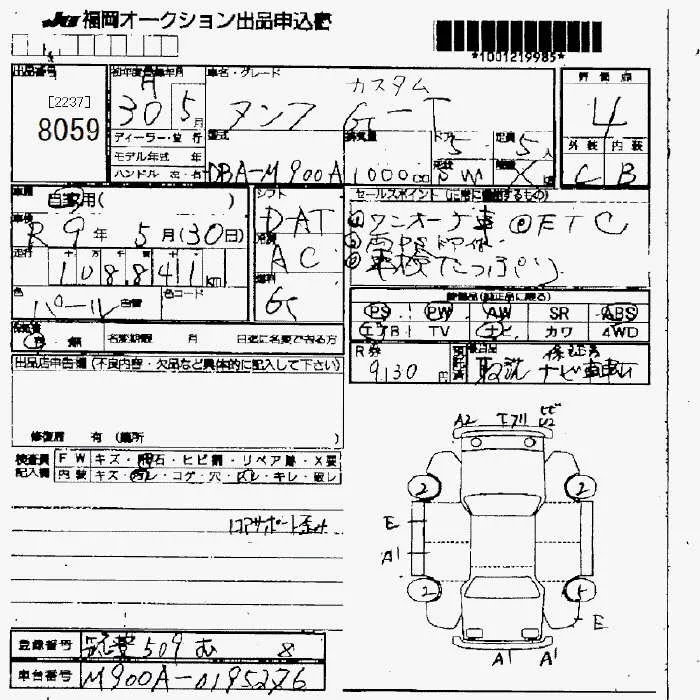 JU 福岡オークション出品申込書
*1001219985*
出品番号
[2237]
8059
初年度登録年月
H 30 5月
車名・グレード
カスタム
タンク G-T
評価点
4
外装 内装
C B
ディーラー・並行
モデル年式 年
ハンドル 左・右
型式
DBA-M900A
排気量
1000cc
ドア
5
形状
5W
定員
5人
車歴
自家用( )
車検
R9年 5月(30日)
走行
108841km
色
パール
色コード
シフト
D-AT
冷房
AC
燃料
G
セールスポイント (に常に優出するもの)
①ワンオーナー車 ②ETC
③両PSドア
④車検たっぷり
装備品(純正品に限る)
PS PW AW SR ABS
エアB TV ナビ カワ 4WD
R券
9130円
取説 保証書
ナビ
有 無 名変期限 月 日迄に名変できる方
出品店申告欄(不良内容・欠品など具体的に記入して下さい)
修復歴 有 (箇所 )
検査員 FW キズ・飛石・ヒビ割・リペア跡・X要
記入欄 内装 キズ・汚レ・コゲ・穴・スレ・キレ・破レ
コアサポート歪み
A2 エアロ
2 2
E
A1
2
E
A1 A1
登録番号
筑豊 509 む 8
車台番号
M900A-0195276